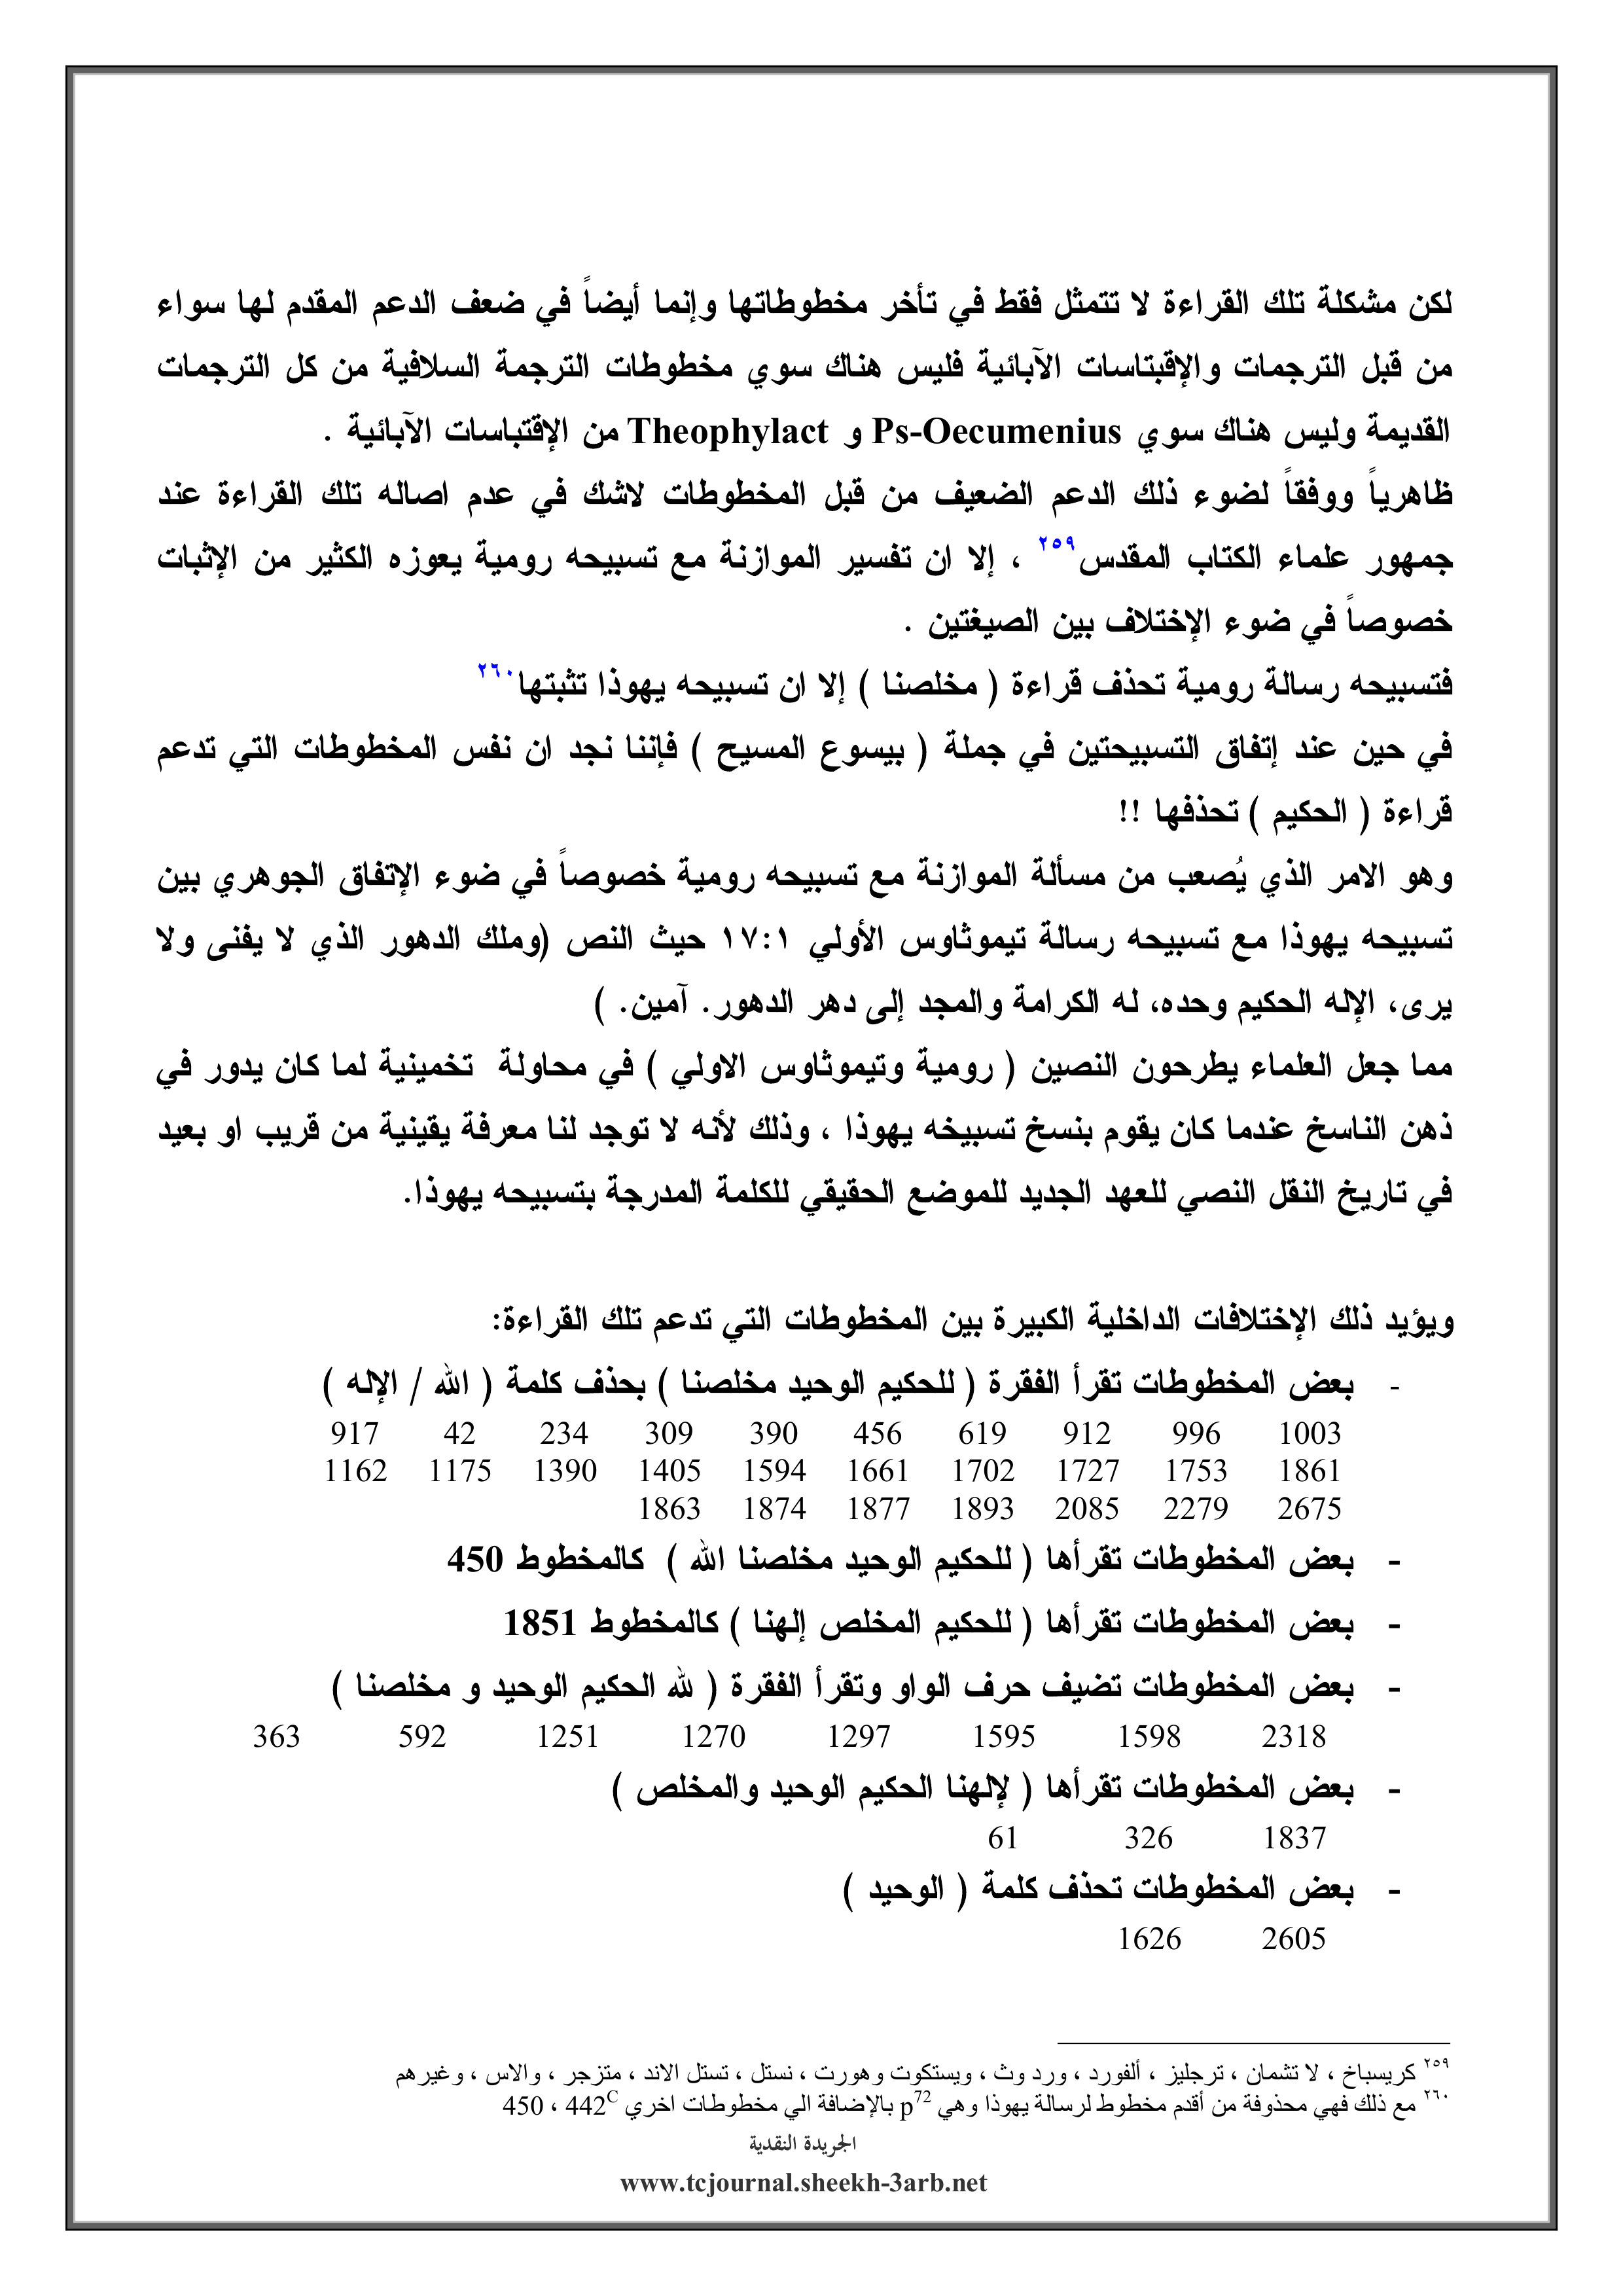 لكن مشكلة تلك القراءة لا تتمثل فقط في تأخر مخطوطاتها وإنما أيضاً في ضعف الدعم المقدم لها سواء
من قبل الترجمات والإقبتاسات الآبائية فليس هناك سوي مخطوطات الترجمة السلافية من كل الترجمات
القديمة وليس هناك سوي Ps-Oecumenius و Theophylact من الإقتباسات الآبائية .
ظاهرياً ووفقاً لضوء ذلك الدعم الضعيف من قبل المخطوطات لاشك في عدم اصاله تلك القراءة عند
جمهور علماء الكتاب المقدس٢٥٩ ، إلا ان تفسير الموازنة مع تسبيحه رومية يعوزه الكثير من الإثبات
خصوصاً في ضوء الإختلاف بين الصيغتين .
فتسبيحه رسالة رومية تحذف قراءة ( مخلصنا ) إلا ان تسبيحه يهوذا تثبتها٢٦٠
في حين عند إتفاق التسبيحتين في جملة ( بيسوع المسيح ) فإننا نجد ان نفس المخطوطات التي تدعم
قراءة ( الحكيم ) تحذفها !!
وهو الامر الذي يُصعب من مسألة الموازنة مع تسبيحه رومية خصوصاً في ضوء الإتفاق الجوهري بين
تسبيحه يهوذا مع تسبيحه رسالة تيموثاوس الأولي ١٧:١ حيث النص (وملك الدهور الذي لا يفنى ولا
يرى، الإله الحكيم وحده، له الكرامة والمجد إلى دهر الدهور. آمين. )
مما جعل العلماء يطرحون النصين ( رومية وتيموثاوس الاولي ) في محاولة تخمينية لما كان يدور في
ذهن الناسخ عندما كان يقوم بنسخ تسبيخه يهوذا ، وذلك لأنه لا توجد لنا معرفة يقينية من قريب او بعيد
في تاريخ النقل النصي للعهد الجديد للموضع الحقيقي للكلمة المدرجة بتسبيحه يهوذا.
ويؤيد ذلك الإختلافات الداخلية الكبيرة بين المخطوطات التي تدعم تلك القراءة:
- بعض المخطوطات تقرأ الفقرة ( للحكيم الوحيد مخلصنا ) بحذف كلمة ( الله / الإله )
917 42 234 309 390 456 619 912 996 1003
1162 1175 1390 1405 1594 1661 1702 1727 1753 1861
1863 1874 1877 1893 2085 2279 2675
- بعض المخطوطات تقرأها ( للحكيم الوحيد مخلصنا الله ) كالمخطوط 450
- بعض المخطوطات تقرأها ( للحكيم المخلص إلهنا ) كالمخطوط 1851
- بعض المخطوطات تضيف حرف الواو وتقرأ الفقرة ( لله الحكيم الوحيد و مخلصنا )
363 592 1251 1270 1297 1595 1598 2318
- بعض المخطوطات تقرأها ( لإلهنا الحكيم الوحيد والمخلص )
61 326 1837
- بعض المخطوطات تحذف كلمة ( الوحيد )
1626 2605
٢٥٩ كريسباخ ، لا تشمان ، ترجليز ، ألفورد ، ورد وث ، ويستكوت وهورت ، نستل ، تستل الاند ، متزجر ، والاس ، وغيرهم
٢٦٠ مع ذلك فهي محذوفة من أقدم مخطوط لرسالة يهوذا وهي p72 بالإضافة الي مخطوطات اخري 442C ، 450
الجريدة النقدية
www.tcjournal.sheekh-3arb.net